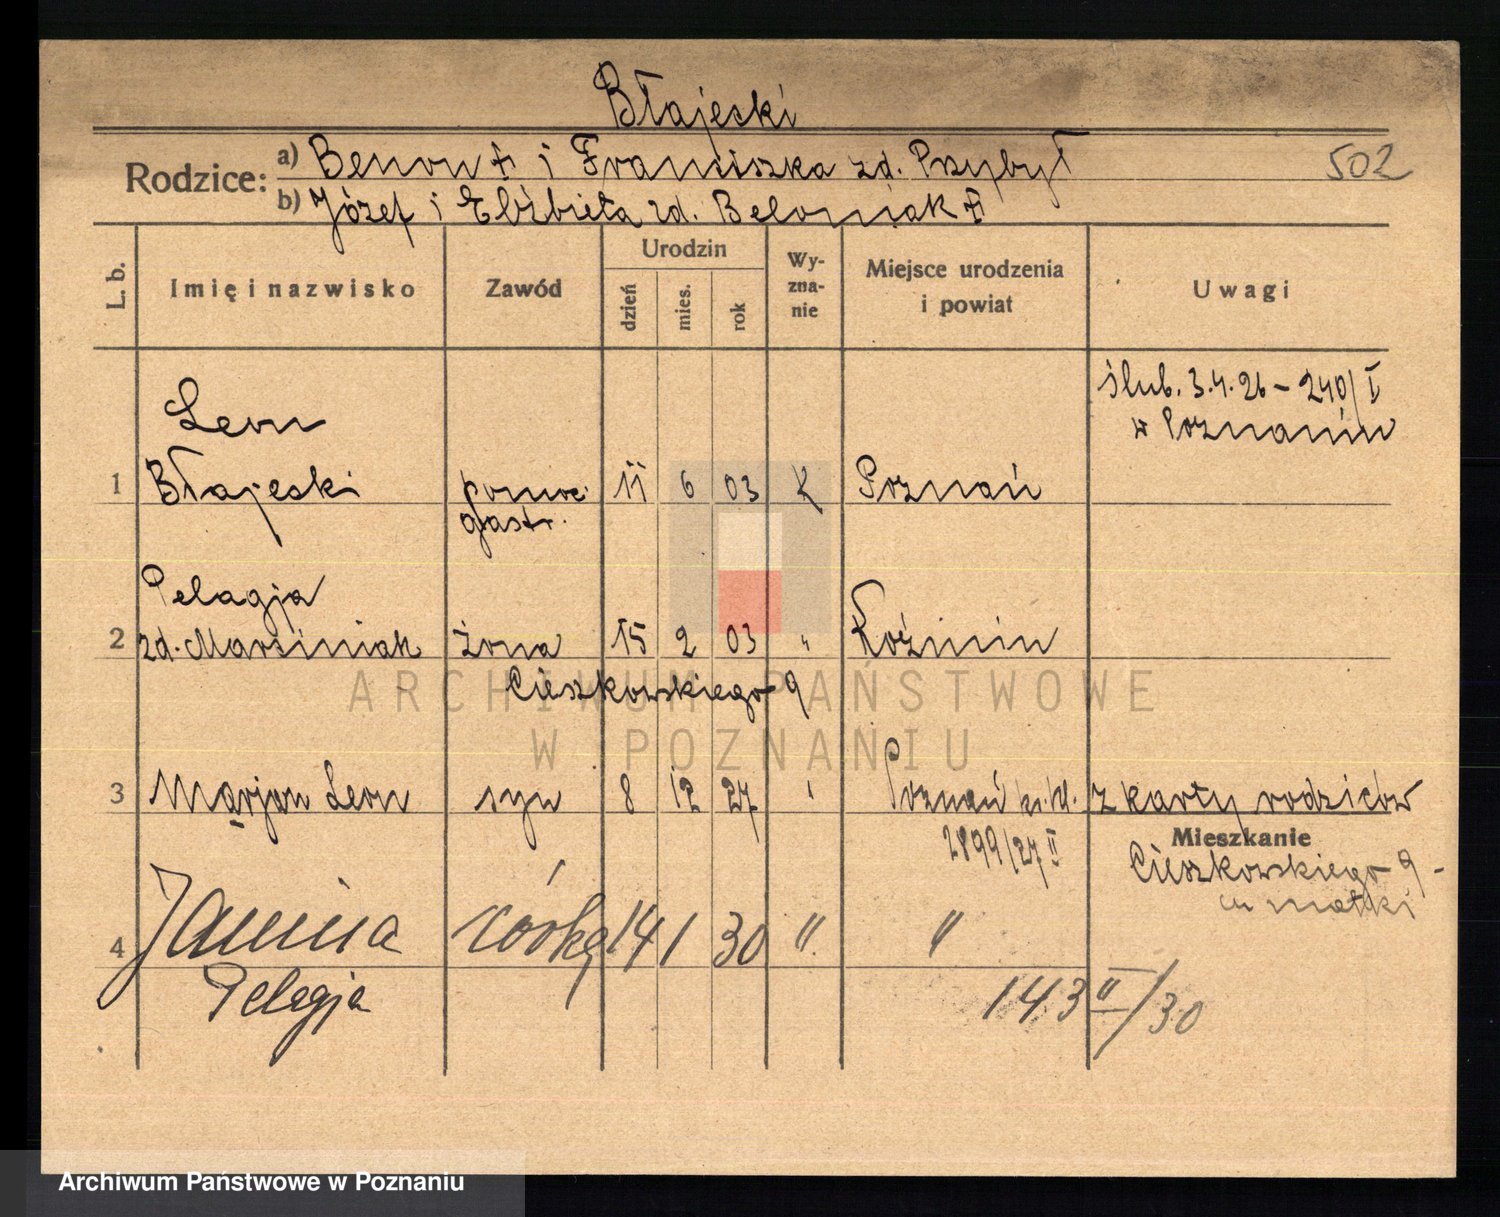 Błajeski
502
Rodzice: a) Benon + i Franciszka zd. Przybył
b) Józef i Elżbieta zd. Beloniak +
L. b.
Imię i nazwisko
Zawód
Urodzin
dzień mies. rok
Wy-
zna-
nie
Miejsce urodzenia
i powiat
Uwagi
ślub. 3.4.26 – 240/I
w Poznaniu
Leon
1 Błajeski pomoc. 11 6 03 K Poznań
gastr.
Pelagja
2 zd. Marciniak żona 15 2 03 " Koźmin
Cieszkowskiego 9
ARCHIWUM PAŃSTWOWE
W POZNANIU
3 Marjan Leon syn 8 12 27 " Poznań z karty rodziców
2899/27 II
Mieszkanie
Cieszkowskiego 9 -
u matki
4 Janina córka 14 1 30 " "
Pelagja
143 II/30
Archiwum Państwowe w Poznaniu